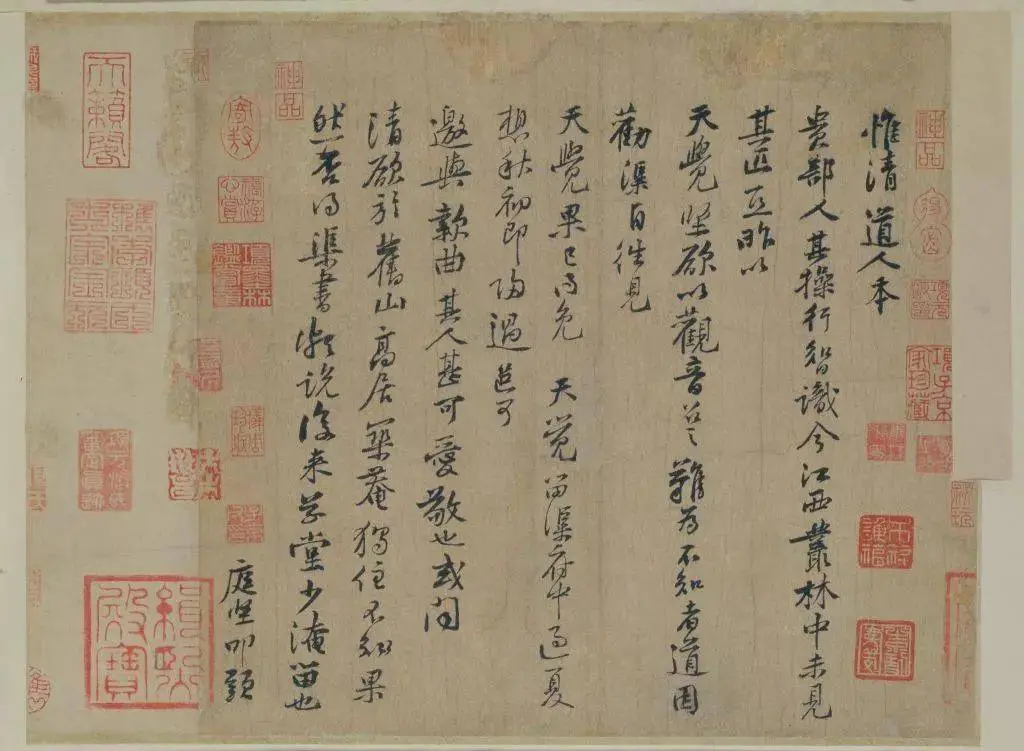 惟清道人本
貴部人其操行智識今江西叢林中未見
其匹亞昨以
天覺堅欲以觀音召之難為不知者道因
勸渠自往見
天覺果已得免 天覺留渠府中過夏
想秋初即歸過邑可
邀與款曲其人甚可愛敬也或聞
清欲於舊山高居築菴獨住不知果
然否得渠書頗說復來草堂少淹留也
庭堅叩頭
神品
項子京家珍藏
神品
天籟閣
緝熙殿寶